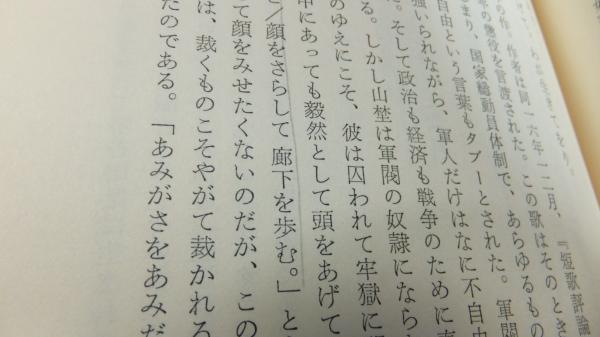 わが生きてをり。
の作 作者は同一六年一二月、『短歌評論
年の懲役を言渡された。この歌はそのとき
まり、国家総動員体制で、あらゆるもの
自由という言葉もタブーとされた。軍閥
強いられながら、軍人だけはなに不自由
た。そして政治も経済も戦争のために
る。しかし山埜は軍閥の奴隷にならな
のゆえにこそ、彼は囚われて牢獄に
中にあっても毅然として頭をあげて
と/顔をさらして廊下を歩む。」と
て顔をみせたくないのだが、この
は、裁くものこそやがて裁かれる
たのである。「あみがさをあみだ